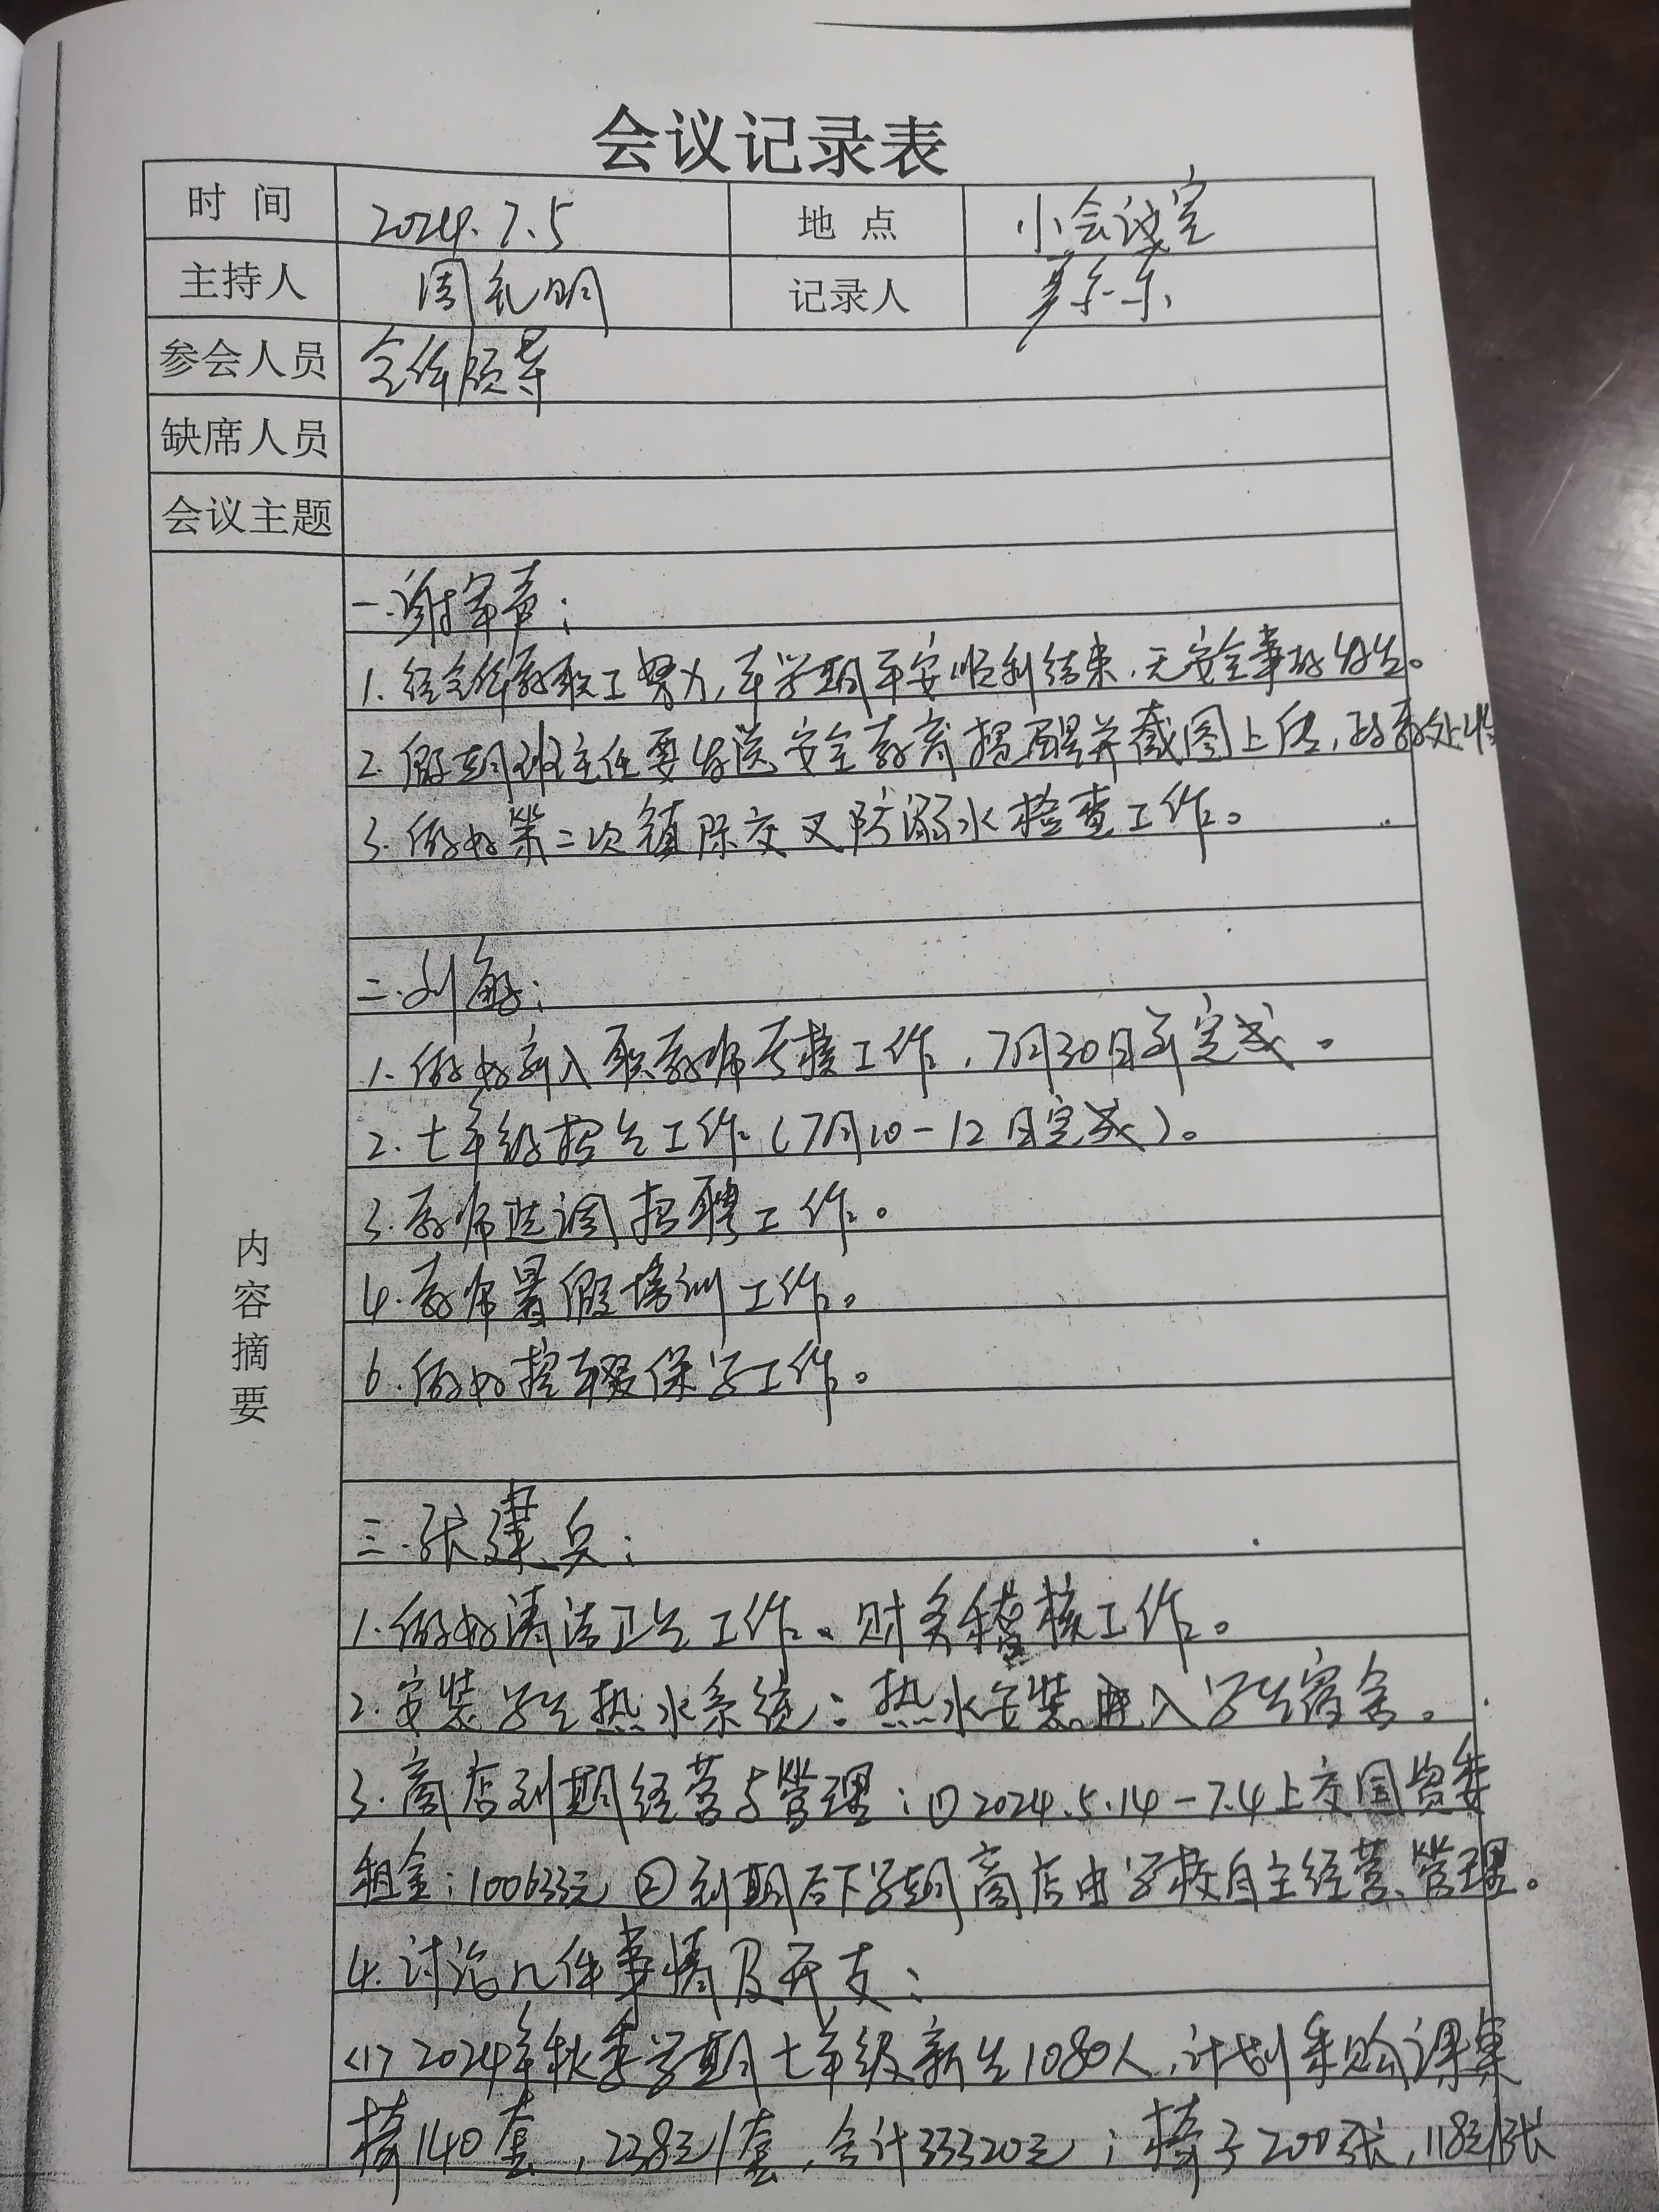 会议记录表
时间 2024.7.5 地点 小会议室
主持人 周礼明 记录人
参会人员 全体领导
缺席人员
会议主题
内容摘要
一.谢军章:
1.经全体教职工努力,本学期平安顺利结束.无安全事故发生。
2.假期班主任要发送安全教育提醒并截图上传,政教处收
3.做好第二次镇际交叉防溺水检查工作。
二.刘敏:
1.做好新入职教师考核工作,7月30日前完成。
2.七年级招生工作(7月10-12日完成)。
3.教师选调招聘工作。
4.教师暑假培训工作。
6.做好控辍保学工作。
三.张建兵:
1.做好清洁卫生工作。财务稽核工作。
2.安装学生热水系统:热水安装进入学生宿舍。
3.商店到期经营与管理:①2024.5.14-7.4上交国资委
租金:10063元 ②到期后下学期商店由学校自主经营、管理。
4.讨论几件事情及开支:
<1>2024年秋季学期七年级新生1080人,计划采购课桌
椅140套,238元/套,合计33320元;椅子200张,118元/张